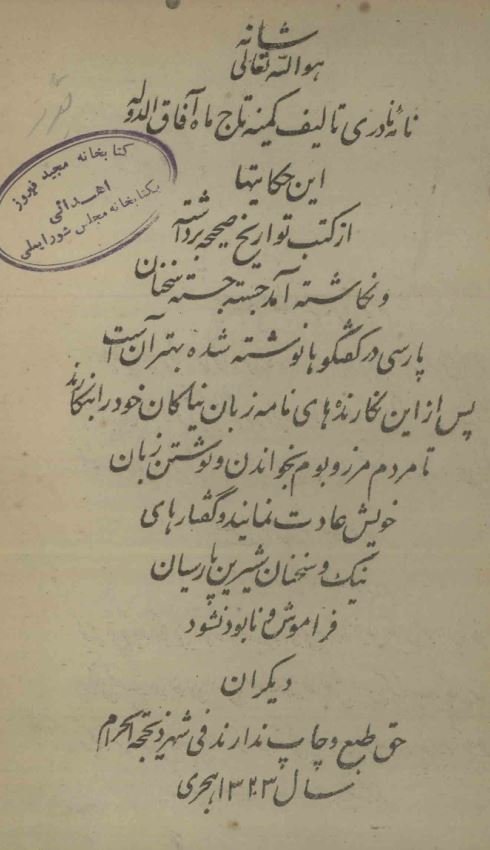 شأنه
هوالله تعالی
نامهٔ نادری تالیف کمینه تاج ماه آفاق الدوله
این حکایتها
از کتب تواریخ صحیحه برداشته
و نگاشته آمد جسته جسته سخنان
پارسی در گفتگوها نوشته شده بهتر آن است
پس از این نگارنده‌های نامه زبان نیاکان خود را بنگارند
تا مردم مرز و بوم بخواندن و نوشتن زبان
خویش عادت نمایند و گفتارهای
نیک و سخنان شیرین پارسیان
فراموش و نابود نشود
دیگران
حق طبع و چاپ ندارند فی شهر ذیحجة الحرام
سال ۱۳۲۳ هجری
کتابخانه مجید فیروز
اهدائی
بکتابخانه مجلس شورایملی